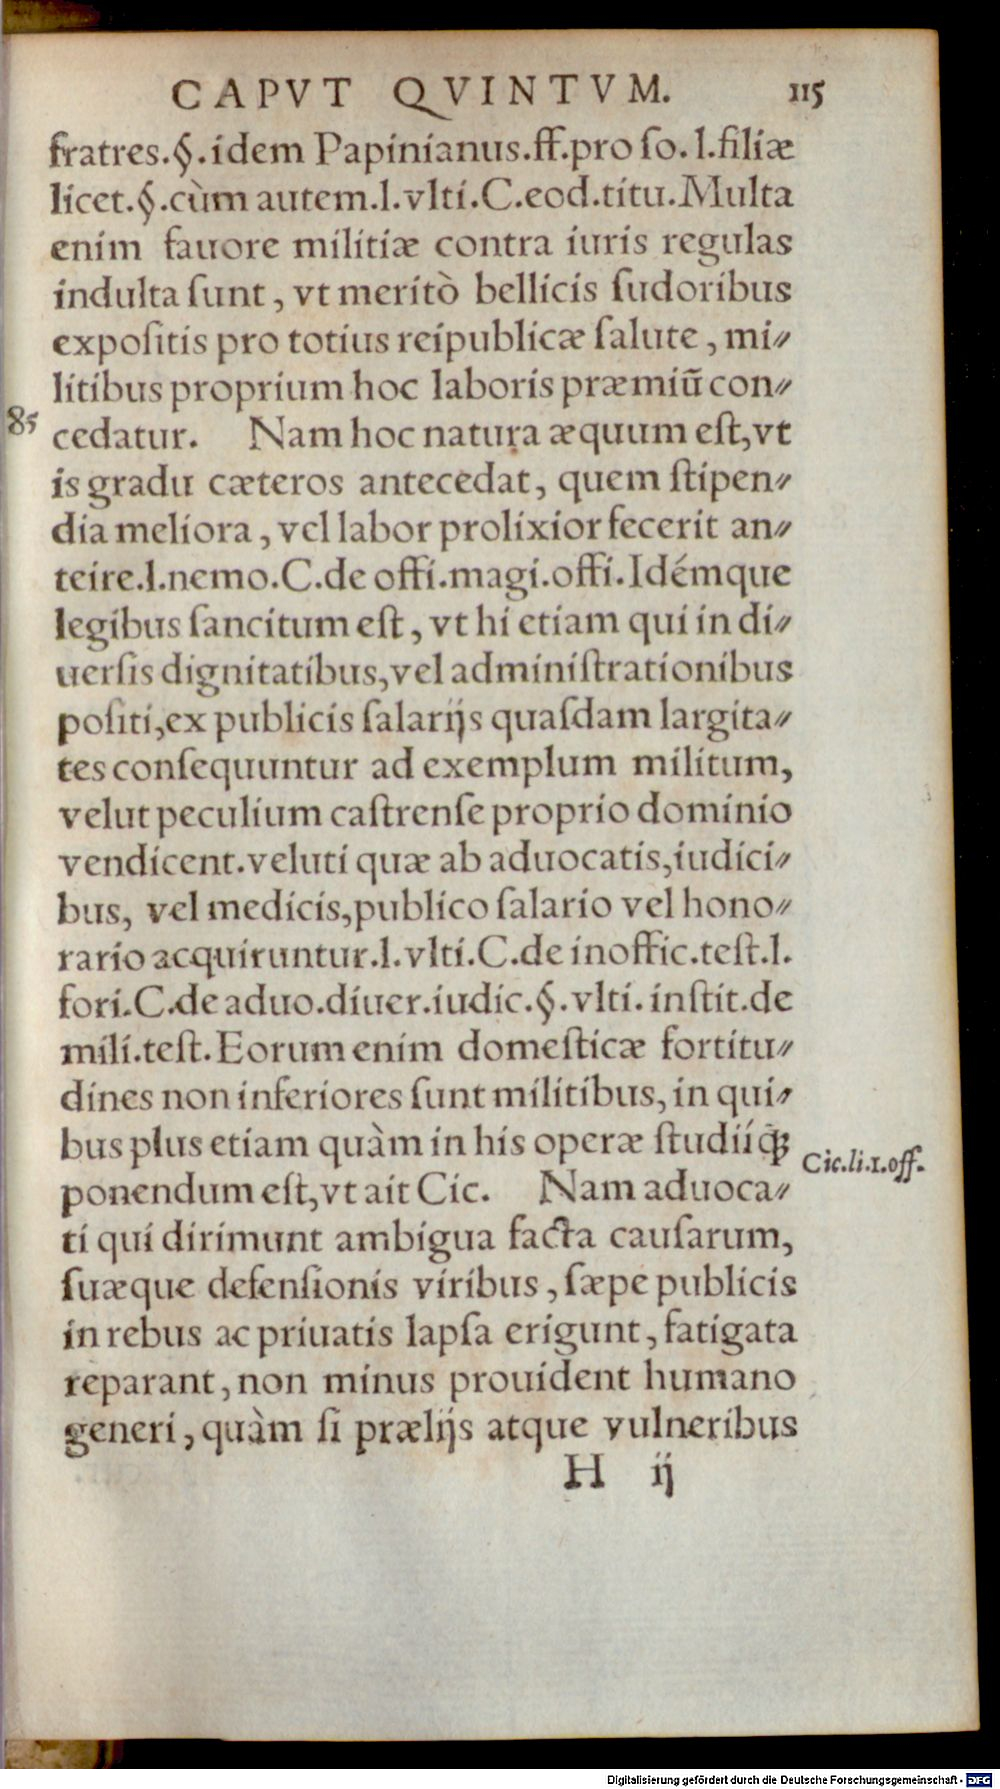 CAPVT QVINTVM. 115
fratres.§.idem Papinianus.ff.pro ſo.l.filiæ
licet.§.cùm autem.l.vlti.C.eod.titu.Multa
enim fauore militiæ contra iuris regulas
indulta ſunt, vt meritò bellicis ſudoribus
expoſitis pro totius reipublicæ ſalute, mi⸗
litibus proprium hoc laboris præmiũ con⸗
85 cedatur. Nam hoc natura æquum eſt, vt
is gradu cæteros antecedat, quem ſtipen⸗
dia meliora, vel labor prolixior fecerit an⸗
teire.l.nemo.C.de offi.magi.offi.Idémque
legibus ſancitum eſt, vt hi etiam qui in di⸗
uerſis dignitatibus, vel adminiſtrationibus
poſiti, ex publicis ſalarijs quaſdam largita⸗
tes conſequuntur ad exemplum militum,
velut peculium caſtrenſe proprio dominio
vendicent.veluti quæ ab aduocatis, iudici⸗
bus, vel medicis, publico ſalario vel hono⸗
rario acquiruntur.l.vlti.C.de inoffic.teſt.l.
fori.C.de aduo.diuer.iudic.§.vlti.inſtit.de
mili.teſt.Eorum enim domeſticæ fortitu⸗
dines non inferiores ſunt militibus, in qui⸗
bus plus etiam quàm in his operæ ſtudiiq̃ꝫ
Cic.li.1.off.
ponendum eſt, vt ait Cic. Nam aduoca⸗
ti qui dirimunt ambigua facta cauſarum,
ſuæque defenſionis viribus, ſæpe publicis
in rebus ac priuatis lapſa erigunt, fatigata
reparant, non minus prouident humano
generi, quàm ſi prælijs atque vulneribus
H ij
Digitalisierung gefördert durch die Deutsche Forschungsgemeinschaft - DFG